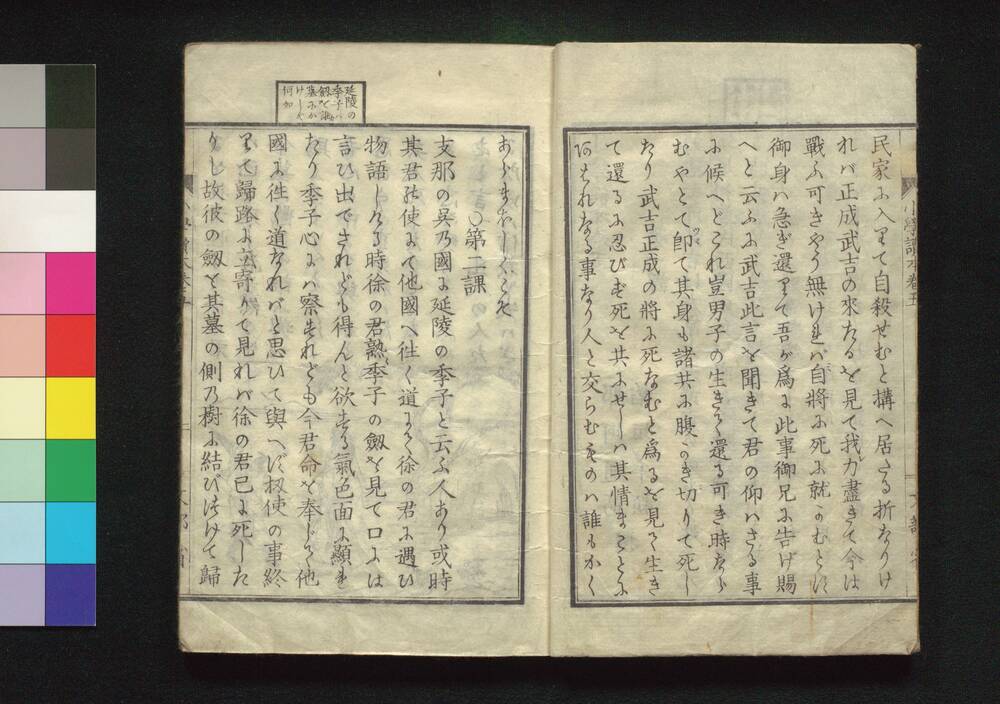 民家に入りて自殺せむと構へ居たる折なりけ
れバ正成武吉の來たるを見て我力盡きて今は
戰ふ可きやう無ければ自將に死に就かむとに
御身ハ急ぎ還りて吾が爲に此事御兄に告げ賜
へと云ふに武吉此言を聞きて君の仰ハさる事
に候へどこれ豈男子の生きて還る可き時なら
むやとて卽て其身も諸共に腹かき切りて死し
たり武吉正成の將に死なむと爲るを見て生き
て還るに忍びず死を共にせしハ其情まことに
あはれなる事なり人と交らむものハ誰もかく
小學讀本卷五
あらまほしくこそ
○第二課
支那の吳の國に延陵の季子と云ふ人あり或時
其君の使にて他國へ往く道にて徐の君に遇ひ
物語しける時徐の君熟季子の劔を見て口には
言ひ出でざれども得んと欲する氣色面に顯れ
たり季子心にハ察すれども今君命を奉じて他
國に往く道なれバと思ひて與へず扨使の事終
りて歸路に立寄りて見れバ徐の君已に死した
りし故彼の劔を其墓の側の樹に結び付けて歸
延陵の
季子ハ
劔を誰
墓にか
けしや
何如